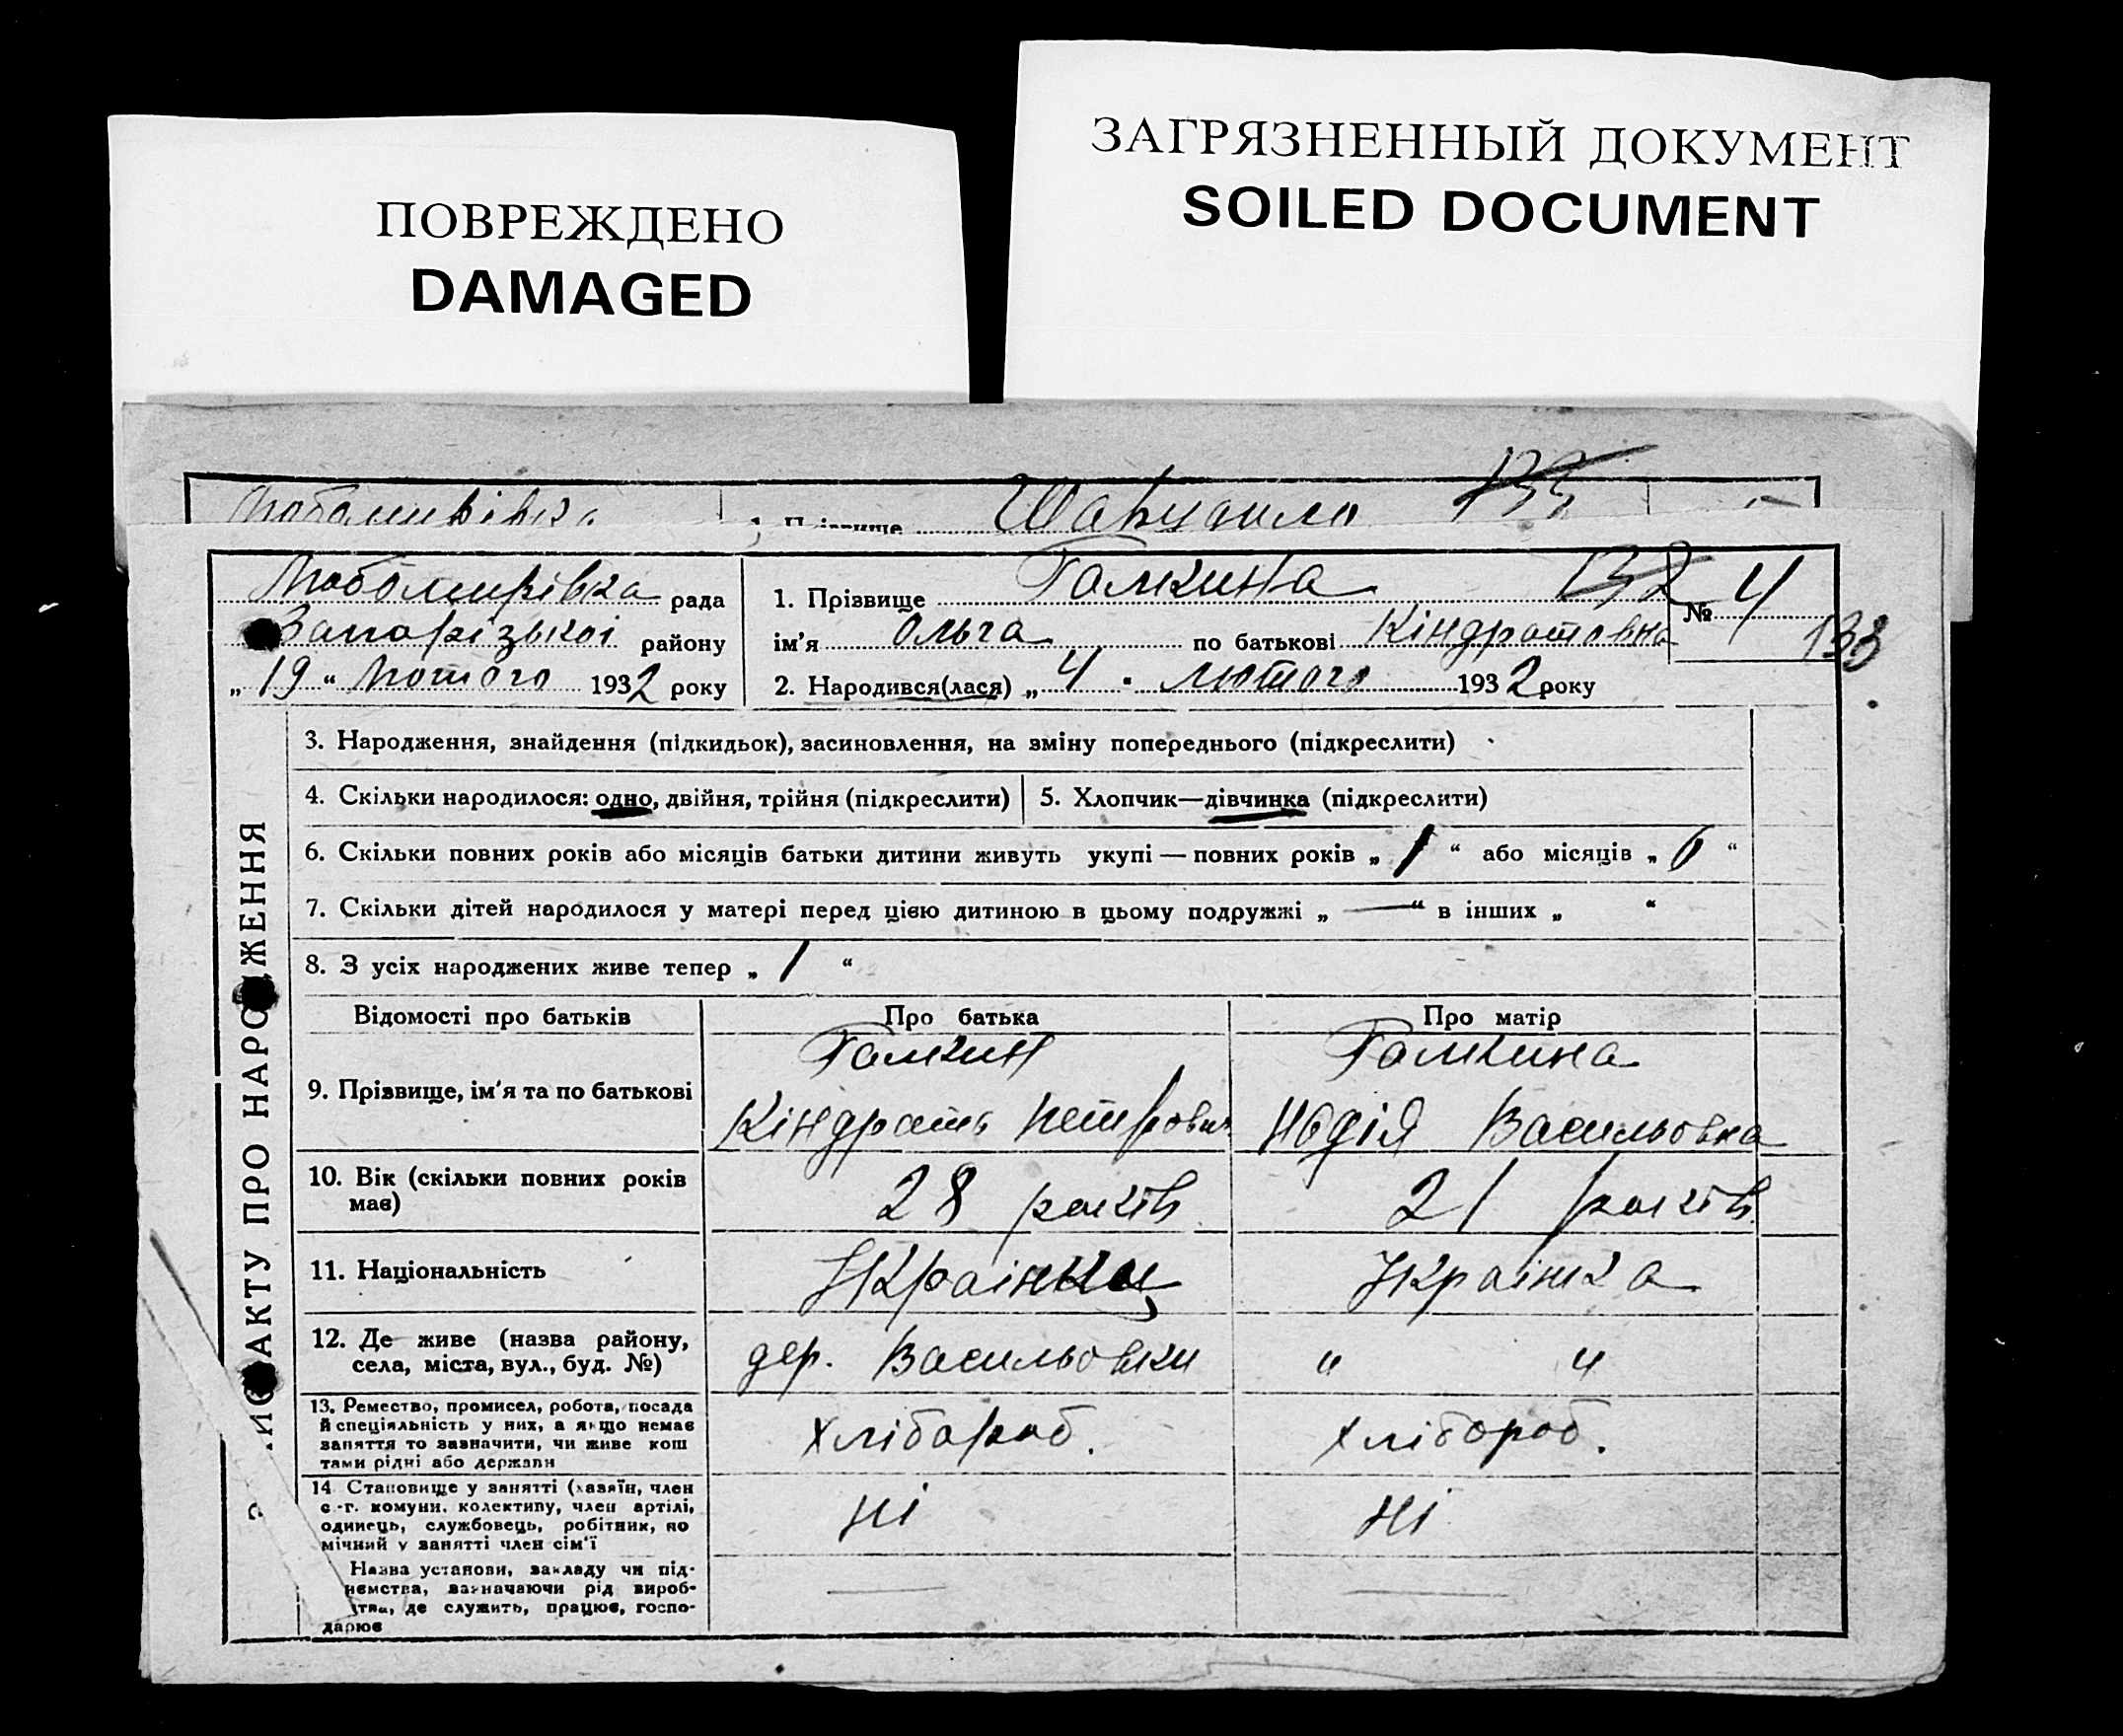 ПОВРЕЖДЕНО
DAMAGED
ЗАГРЯЗНЕННЫЙ ДОКУМЕНТ
SOILED DOCUMENT
133
Любомирівка рада
Запорізькоі району
„ 19 “ Лютого 1932 року
1. Прізвище Галкина
ім'я Ольга по батькові Кіндратовна
2. Народився(лася) „ 4 . лютого 1932 року
132
№ 4
133
3. Народження, знайдення (підкидьок), засиновлення, на зміну попереднього (підкреслити)
4. Скільки народилося: одно, двійня, трійня (підкреслити) 5. Хлопчик—дівчинка (підкреслити)
6. Скільки повних років або місяців батьки дитини живуть укупі — повних років „ 1 “ або місяців „ 6 “
7. Скільки дітей народилося у матері перед цією дитиною в цьому подружжі „ — “ в інших „ “
8. З усіх народжених живе тепер „ 1 “
АКТУ ПРО НАРОДЖЕННЯ
Відомості про батьків Про батька Про матір
9. Прізвище, ім'я та по батькові
Галкин
Кіндрать Петрович
Галкина
Надія Васильовна
10. Вік (скільки повних років
має)
28 років 21 років
11. Національність Українец Українка
12. Де живе (назва району,
села, міста, вул., буд. №)
дер. Васильовки " "
13. Ремество, промисел, робота, посада
й спеціяльність у них, а якщо немає
заняття то зазначити, чи живе кош
тами рідні або держави
Хлібороб. Хлібороб.
14 Становище у занятті (хазяїн, член
с.-г. комуни, колективу, член артілі,
одинець, службовець, робітник, по
мічний у занятті член сім'ї
ні ні
Назва установи, закладу чи під-
немства, зазначаючи рід вироб-
тва, де служить, працює, госпо-
дарює